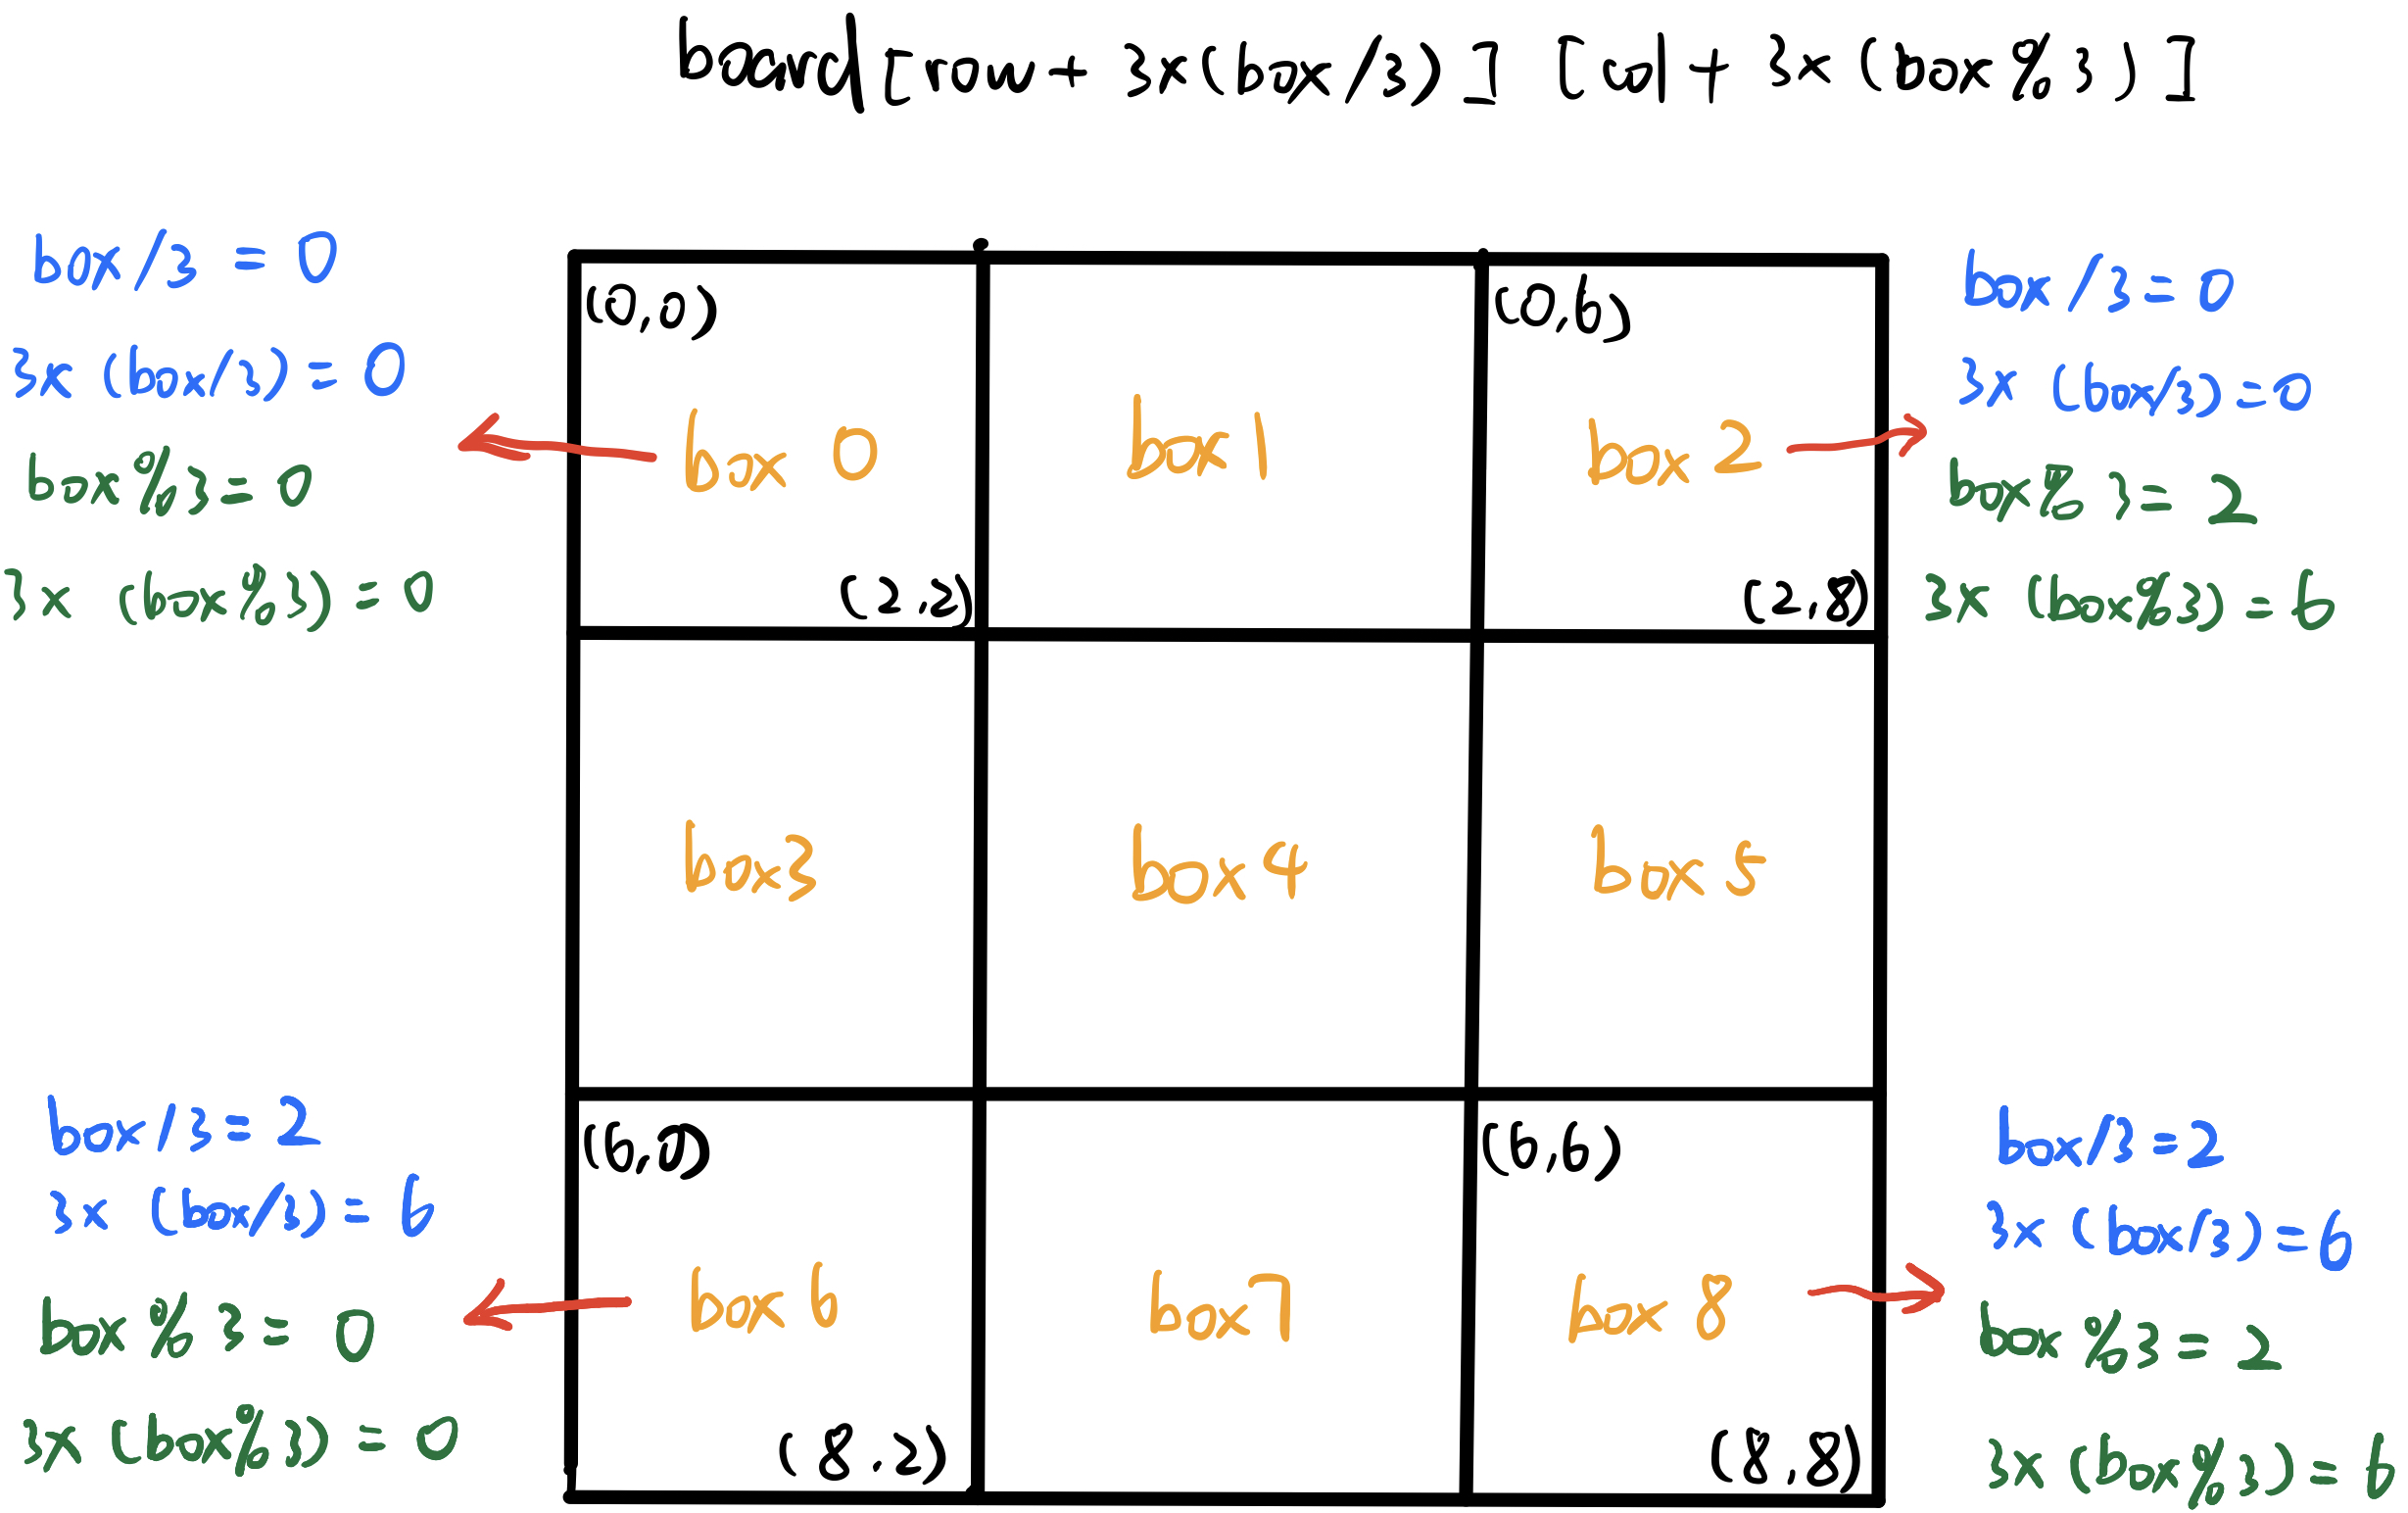 board [row + 3x(box/3)] [col + 3x(box%3)]
box/3 = 0
3x (box/3) = 0
box%3 = 0
3x (box%3) = 0
(0,0)
box 0
(2,2)
box 1
(0,6)
box 2
(2,8)
box/3 = 0
3x (box/3) = 0
box% 3 = 2
3x (box%3) = 6
box 3
box 4
box 5
box/3 = 2
3x (box/3) = 6
box % 3 = 0
3x (box%3) = 0
(6,0)
box 6
(8.2)
box 7
(6,6)
box 8
(8,8)
box/3 = 2
3x (box/3) = 6
box %3 = 2
3x (box%3) = 6